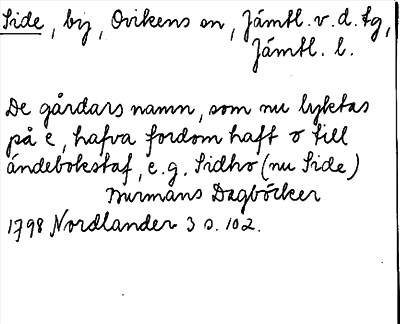 Side, by, Ovikens sn, Jämtl. v. d. tg,
Jämtl. l.
De gårdars namn, som nu lyktas
på e, hafva fordom haft o till
ändebokstaf, e. g. Sidho (nu Side)
Burmans Dagböcker
1798 Nordlander 3 s. 102.